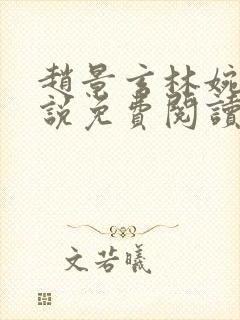 趙景言林婉
說免費閱讀
文若曦